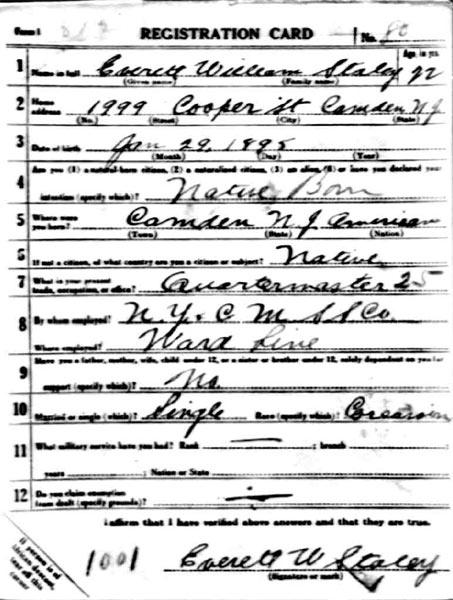 Form 1 REGISTRATION CARD No. 80
Age, in yrs.
1 Name in full Everett William Staley 22
(Given name) (Family name)
2 Home address 1999 Cooper St Camden N.J.
(No.) (Street) (City) (State)
3 Date of birth Jan 29, 1895
(Month) (Day) (Year)
4 Are you (1) a natural-born citizen, (2) a naturalized citizen, (3) an alien, (4) or have you declared your
intention (specify which)? Native Born
5 Where were you born? Camden N J American
(Town) (State) (Nation)
6 If not a citizen, of what country are you a citizen or subject? Native
7 What is your present trade, occupation, or office? Quartermaster 25
8 By whom employed? N. Y. & C M S S Co.
Where employed? Ward Line
9 Have you a father, mother, wife, child under 12, or a sister or brother under 12, solely dependent on you for
support (specify which)? No
10 Married or single (which)? Single Race (specify which)?
11 What military service have you had? Rank ; branch
years ; Nation or State
12 Do you claim exemption from draft (specify grounds)?
I affirm that I have verified above answers and that they are true.
1001 Everett W Staley
(Signature or mark)
If person is of African descent, tear off this corner